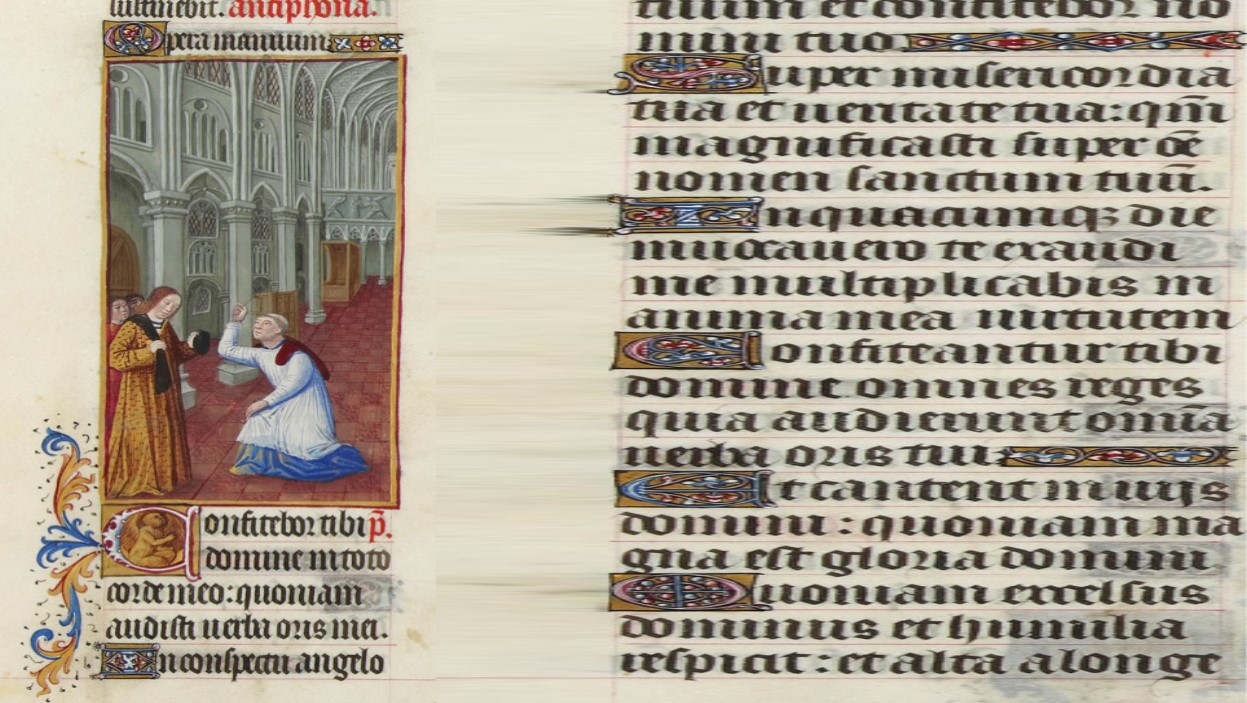 sustinebit. antiphona.
Opera manuum
Confitebor tibi p̄.
domine in toto
corde meo: quoniam
audisti uerba oris mei.
In conspectu angelo
tuum et confitebor no
mini tuo
Super misericordia
tua et ueritate tua: qm̄
magnificasti super oē
nomen sanctum tuū.
In quacumqꝫ die
inuocauero te exaudi
me multiplicabis in
anima mea uirtutem
Confiteantur tibi
domine omnes reges
quia audierunt omīa
uerba oris tui:
Et cantent in uijs
domini: quoniam ma
gna est gloria domini
Quoniam excelsus
dominus et humilia
respicit: et alta a longe